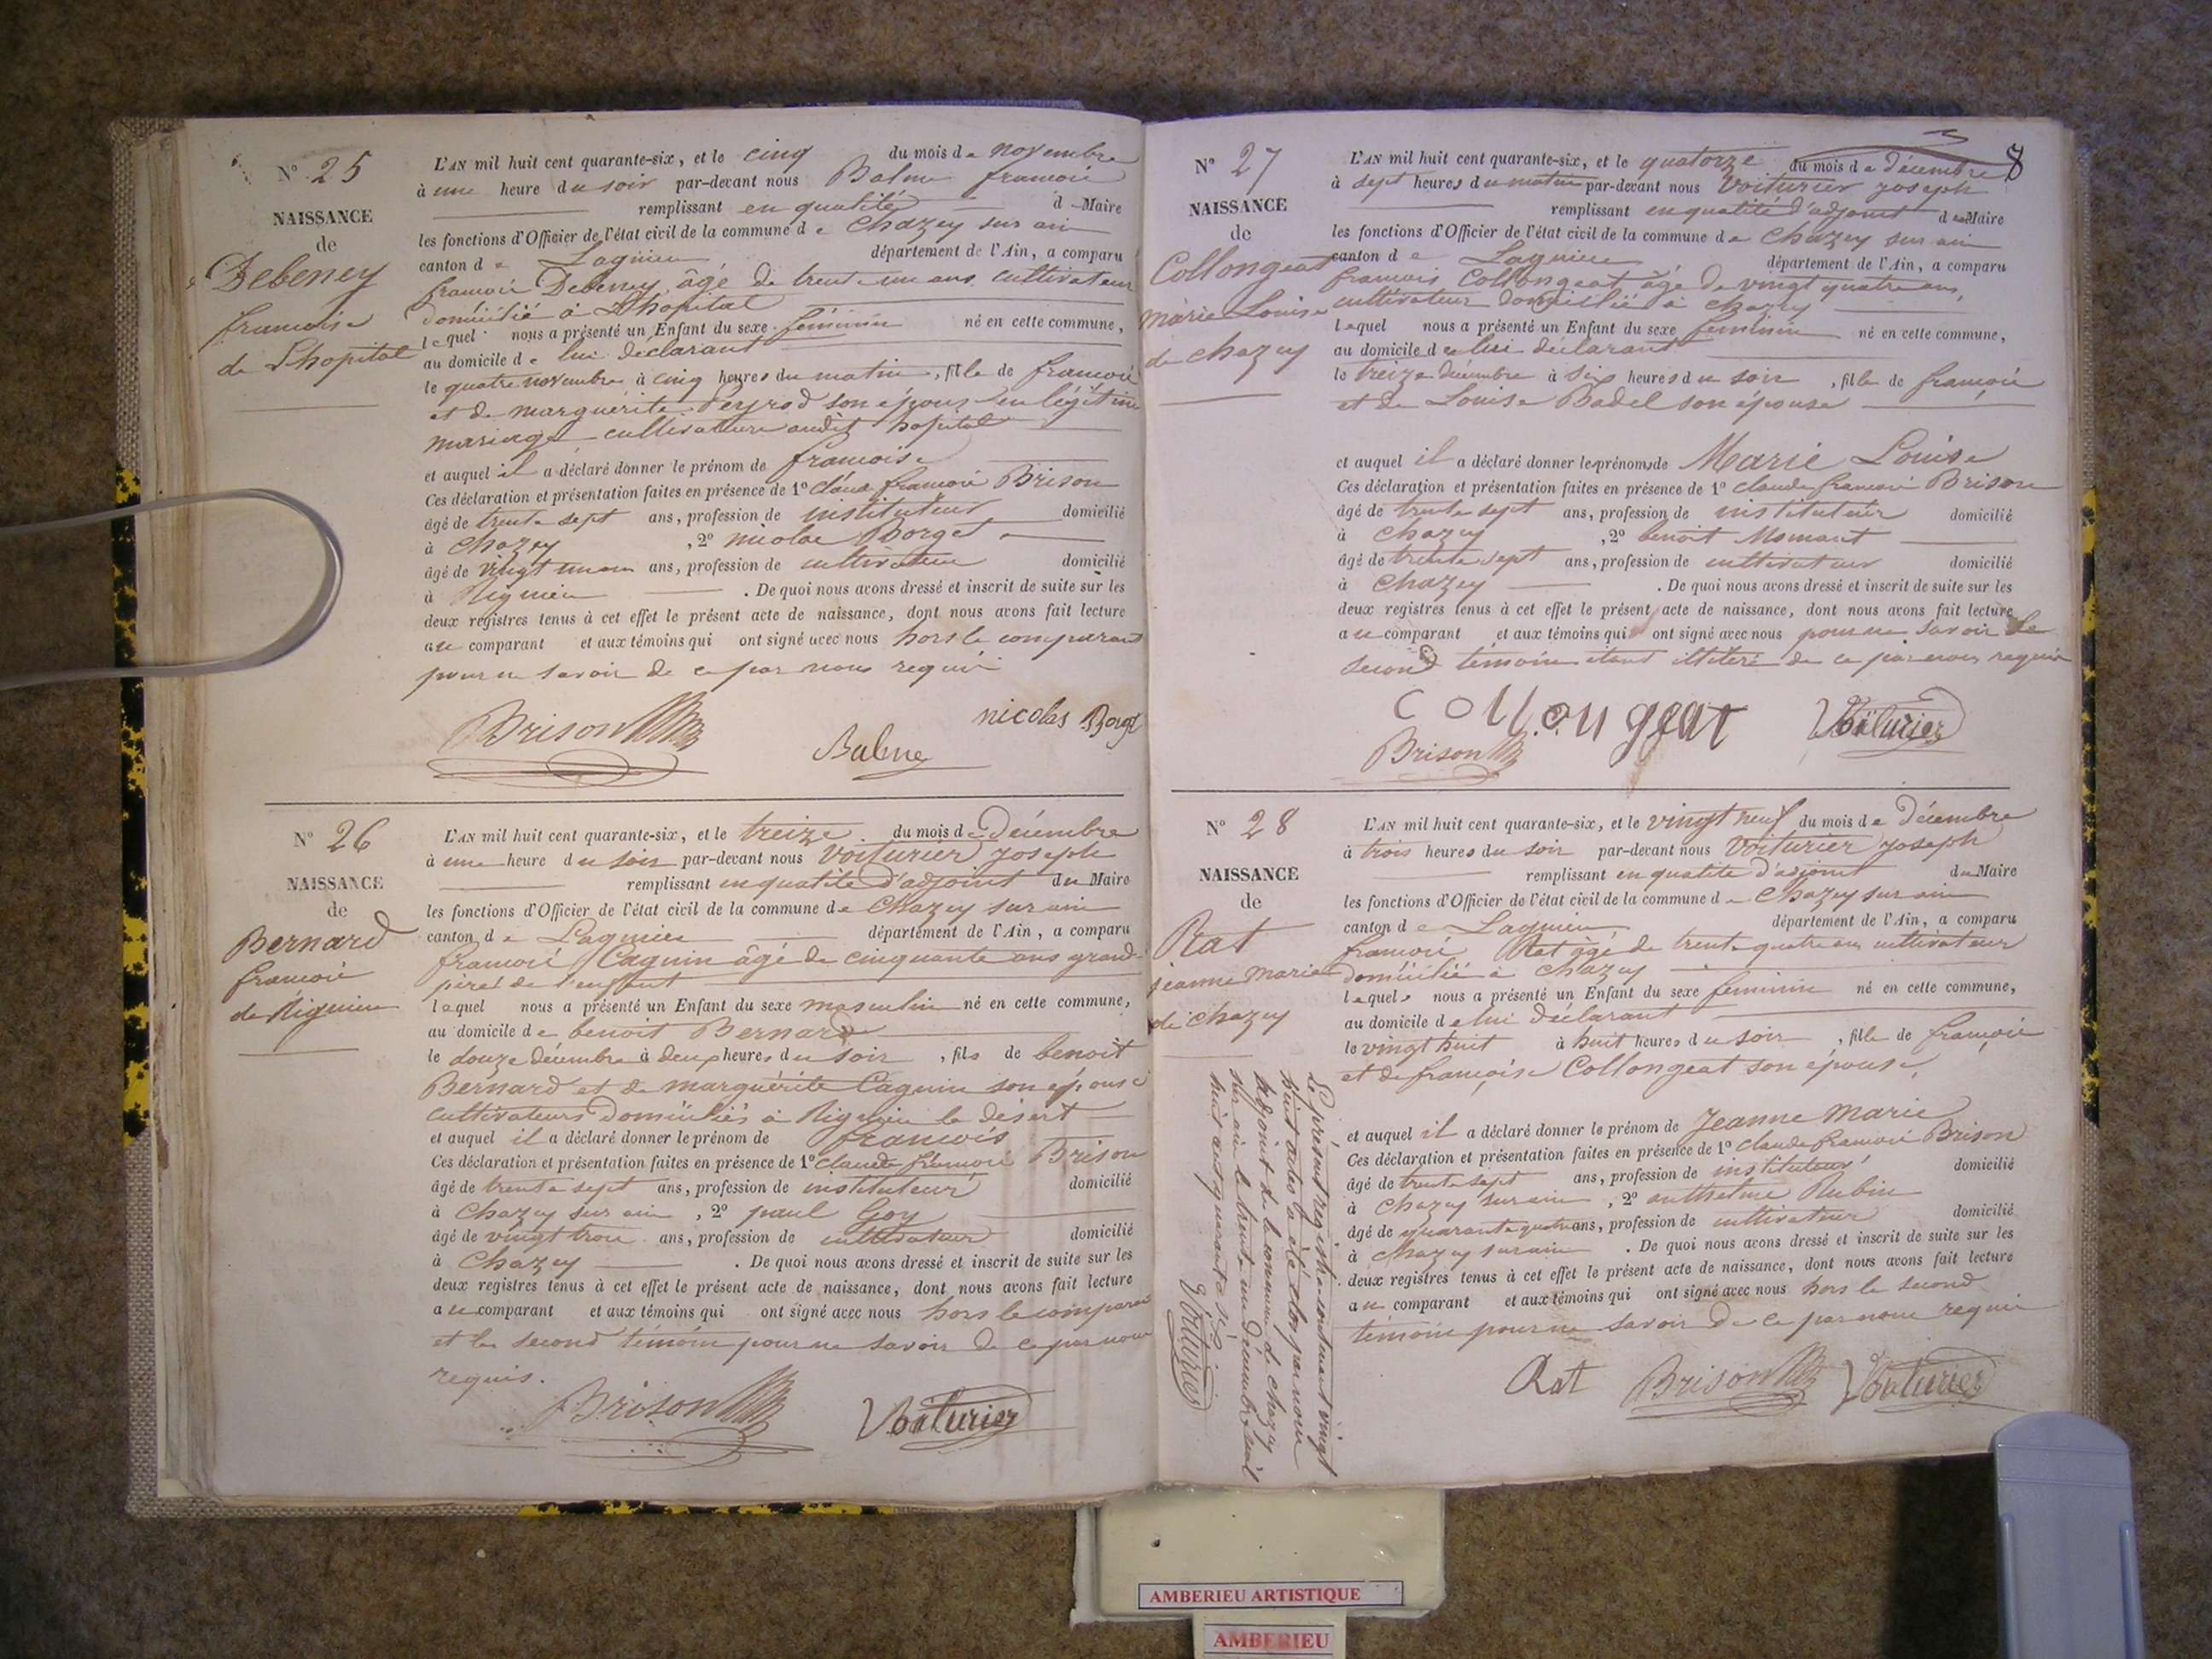 N° 25
NAISSANCE
de
Debeney
francoise
de Lhopital
L'AN mil huit cent quarante-six, et le cinq du mois de novembre
à une heure du soir par-devant nous Balme francois
remplissant en qualité d Maire
les fonctions d'Officier de l'état civil de la commune de Chazey sur ain
canton de Lagnieu département de l'Ain, a comparu
francois Debeney âgé de trente un ans cultivateur
domicilié à Lhopital
lequel nous a présenté un Enfant du sexe féminin né en cette commune,
au domicile de lui déclarant
le quatre novembre à cinq heures du matin, fille de francois
et de marguérite Peyrod son épouse en légitime
mariage cultivateurs audit hopital
et auquel il a déclaré donner le prénom de francoise
Ces déclaration et présentation faites en présence de 1° Claude francois Brison
âgé de trente sept ans, profession de instituteur domicilié
à Chazey, 2° nicolas Borget
âgé de vingt un ans, profession de cultivateur domicilié
à Rignieu. De quoi nous avons dressé et inscrit de suite sur les
deux registres tenus à cet effet le présent acte de naissance, dont nous avons fait lecture
au comparant et aux témoins qui ont signé avec nous hors le comparant
pour ne savoir de ce par nous requis
Brison Balme nicolas Borget
N° 26
NAISSANCE
de
Bernard
francois
de Rignieu
L'AN mil huit cent quarante-six, et le treize du mois de Décembre
à une heure du soir par-devant nous Voiturier joseph
remplissant en qualité d'adjoint du Maire
les fonctions d'Officier de l'état civil de la commune de Chazey sur ain
canton de Lagnieu département de l'Ain, a comparu
francois Caguin âgé de cinquante ans grand
pére de l'enfant
lequel nous a présenté un Enfant du sexe masculin né en cette commune,
au domicile de benoit Bernard
le douze décembre à deux heures du soir, fils de benoit
Bernard et de marguérite Caguin son épouse
cultivateurs domiciliés à Rignieu le désert
et auquel il a déclaré donner le prénom de francois
Ces déclaration et présentation faites en présence de 1° Claude francois Brison
âgé de trente sept ans, profession de instituteur domicilié
à Chazey sur ain, 2° paul Goy
âgé de vingt trois ans, profession de cultivateur domicilié
à Chazey. De quoi nous avons dressé et inscrit de suite sur les
deux registres tenus à cet effet le présent acte de naissance, dont nous avons fait lecture
au comparant et aux témoins qui ont signé avec nous hors le comparant
et le second témoin pour ne savoir de ce par nous
requis.
Brison Voiturier
8
N° 27
NAISSANCE
de
Collongeat
marie Louise
de chazey
L'AN mil huit cent quarante-six, et le quatorze du mois de décembre
à sept heures du matin par-devant nous Voiturier joseph
remplissant en qualité d'adjoint de Maire
les fonctions d'Officier de l'état civil de la commune de Chazey sur ain
canton de Lagnieu département de l'Ain, a comparu
francois Collongeat âgé de vingt quatre ans,
cultivateur domicilié à chazey
lequel nous a présenté un Enfant du sexe feminin né en cette commune,
au domicile de lui déclarant
le treize décembre à six heures du soir, fille de francois
et de Louise Badel son épouse
et auquel il a déclaré donner les prénoms de Marie Louise
Ces déclaration et présentation faites en présence de 1° Claude francois Brison
âgé de trente sept ans, profession de instituteur domicilié
à Chazey, 2° benoit Momant
âgé de trente sept ans, profession de cultivateur domicilié
à Chazey. De quoi nous avons dressé et inscrit de suite sur les
deux registres tenus à cet effet le présent acte de naissance, dont nous avons fait lecture
au comparant et aux témoins qui ont signé avec nous pour ne savoir le
second témoin étant illitéré de ce par nous requis
Collongeat Voiturier
Brison
N° 28
NAISSANCE
de
Rat
jeanne marie
de chazey
L'AN mil huit cent quarante-six, et le vingt neuf du mois de Décembre
à trois heures du soir par-devant nous Voiturier joseph
remplissant en qualité d'adjoint du Maire
les fonctions d'Officier de l'état civil de la commune de Chazey sur ain
canton de Lagnieu département de l'Ain, a comparu
francois Rat âgé de trente quatre ans cultivateur
domicilié à Chazey
lequel nous a présenté un Enfant du sexe feminin né en cette commune,
au domicile de lui déclarant
le vingt huit à huit heures du soir, fille de francois
et de françoise Collongeat son épouse,
et auquel il a déclaré donner le prénom de Jeanne marie
Ces déclaration et présentation faites en présence de 1° Claude francois Brison
âgé de trente sept ans, profession de instituteur domicilié
à Chazey sur ain, 2° anthelme Rubin
âgé de quarante quatre ans, profession de cultivateur domicilié
à Chazey sur ain. De quoi nous avons dressé et inscrit de suite sur les
deux registres tenus à cet effet le présent acte de naissance, dont nous avons fait lecture
au comparant et aux témoins qui ont signé avec nous hors le second
témoin pour ne savoir de ce par nous requis
Rat Brison Voiturier
Le présent registre contenant vingt
huit actes a été clos par nous
adjoint de la commune de chazey
sur ain le trente un décembre mil
huit cent quarante six
Voiturier
AMBERIEU ARTISTIQUE
AMBERIEU